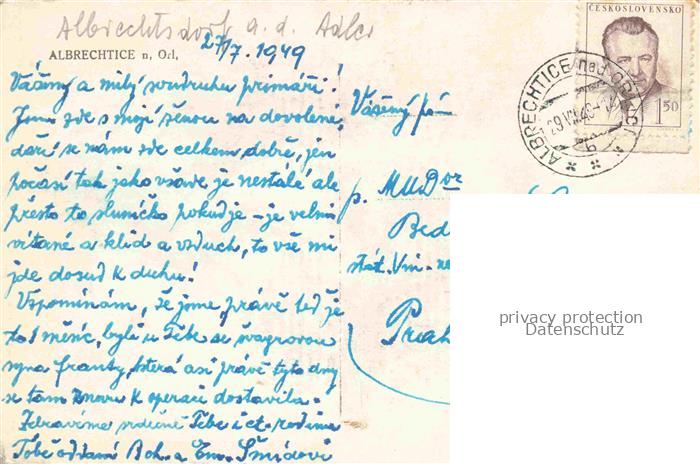 Albrechtsdorf a. d. Adler
ALBRECHTICE n. Orl.
27/7. 1949
Vážený a milý soudruhu primáři!
Jsme zde s mojí ženou na dovolené,
daří se nám zde celkem dobře, jen
počasí tak jako všude je nestálé ale
přesto to sluníčko pokud je – je velmi
vítané a klid a vzduch, to vše mi
jde dosud k duhu!
Vzpomínám, že jsme právě teď je
to 1 měsíc, byli u Tebe se švagrovou
syna Franty, která asi právě tyto dny
se tam znovu k operaci dostavila.
Zdravíme srdečně Tebe i ct. rodinu
Tobě oddaní Boh. a Em. Šmídovi
ČESKOSLOVENSKO
1.50
ALBRECHTICE nad ORLICÍ
b
Vážený pán
p. MUDor
Bed
stát.
Prah
privacy protection
Datenschutz